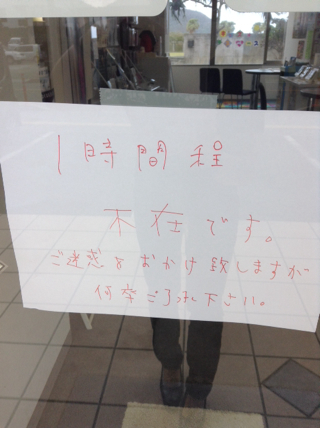 1時間程
不在です。
ご迷惑をおかけ致しますが
何卒ご了承下さい。